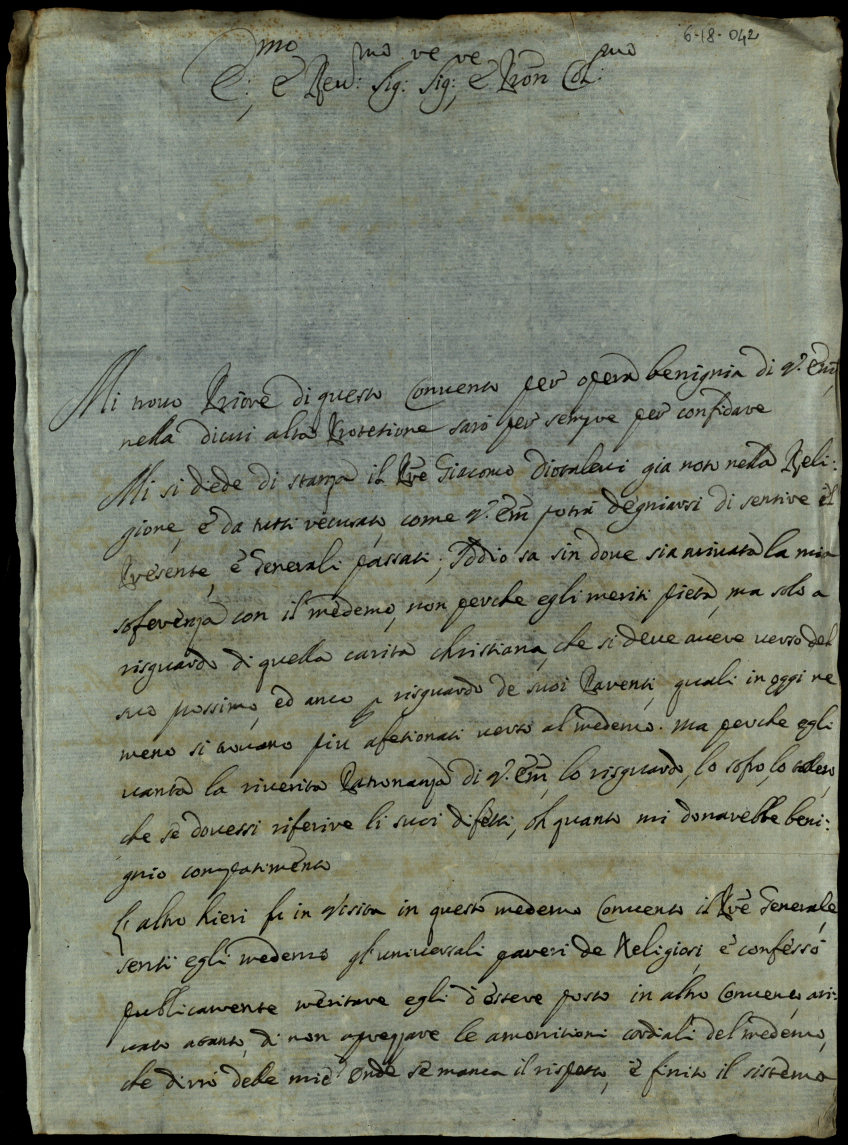 6-18-042
E:mo, è Rev:mo Sig:re Sig:re, è Pron Col:mo
Mi trovo Priore di questo Convento per opera benignia di V.ra Em:
nella di cui alta Protetione sarò per sempre per confidare
Mi si diede di stanza il Pre Giacomo Diotalevi gia noto nella Reli:
gione, è da tutti recusato, come V.ra Em potrà degniarsi di sentire èl
Presente, è Generali passati; Iddio sa sin dove sia arivata la mia
soferenza con il medemo, non perche egli meriti pietà, ma solo a
risguardo di quella carità christiana, che si deve avere verso del
suo prossimo, ed anco p risguardo de suoi Parenti, quali in oggi ne
meno si trovano più afetionati verso al medemo. Ma perche egli
vanta la riverita Patronanza di V.ra Em, lo risguardo, lo sofro, lo tolero,
che se dovessi riferire li suoi difetti, oh quanto mi donarebbe beni:
gnio compatimento
L'altro hieri fu in Visita in questo medemo Convento il Pre Generale
sentì egli medemo gl'universali pareri de Religiosi, è confessò
publicamente meritare egli d'essere posto in altro Convento, ari:
vato a tanto, di non aprezzare le amonitioni cordiali del medemo,
che dirò delle mie? Onde se manca il rispetto, è finito il sistema